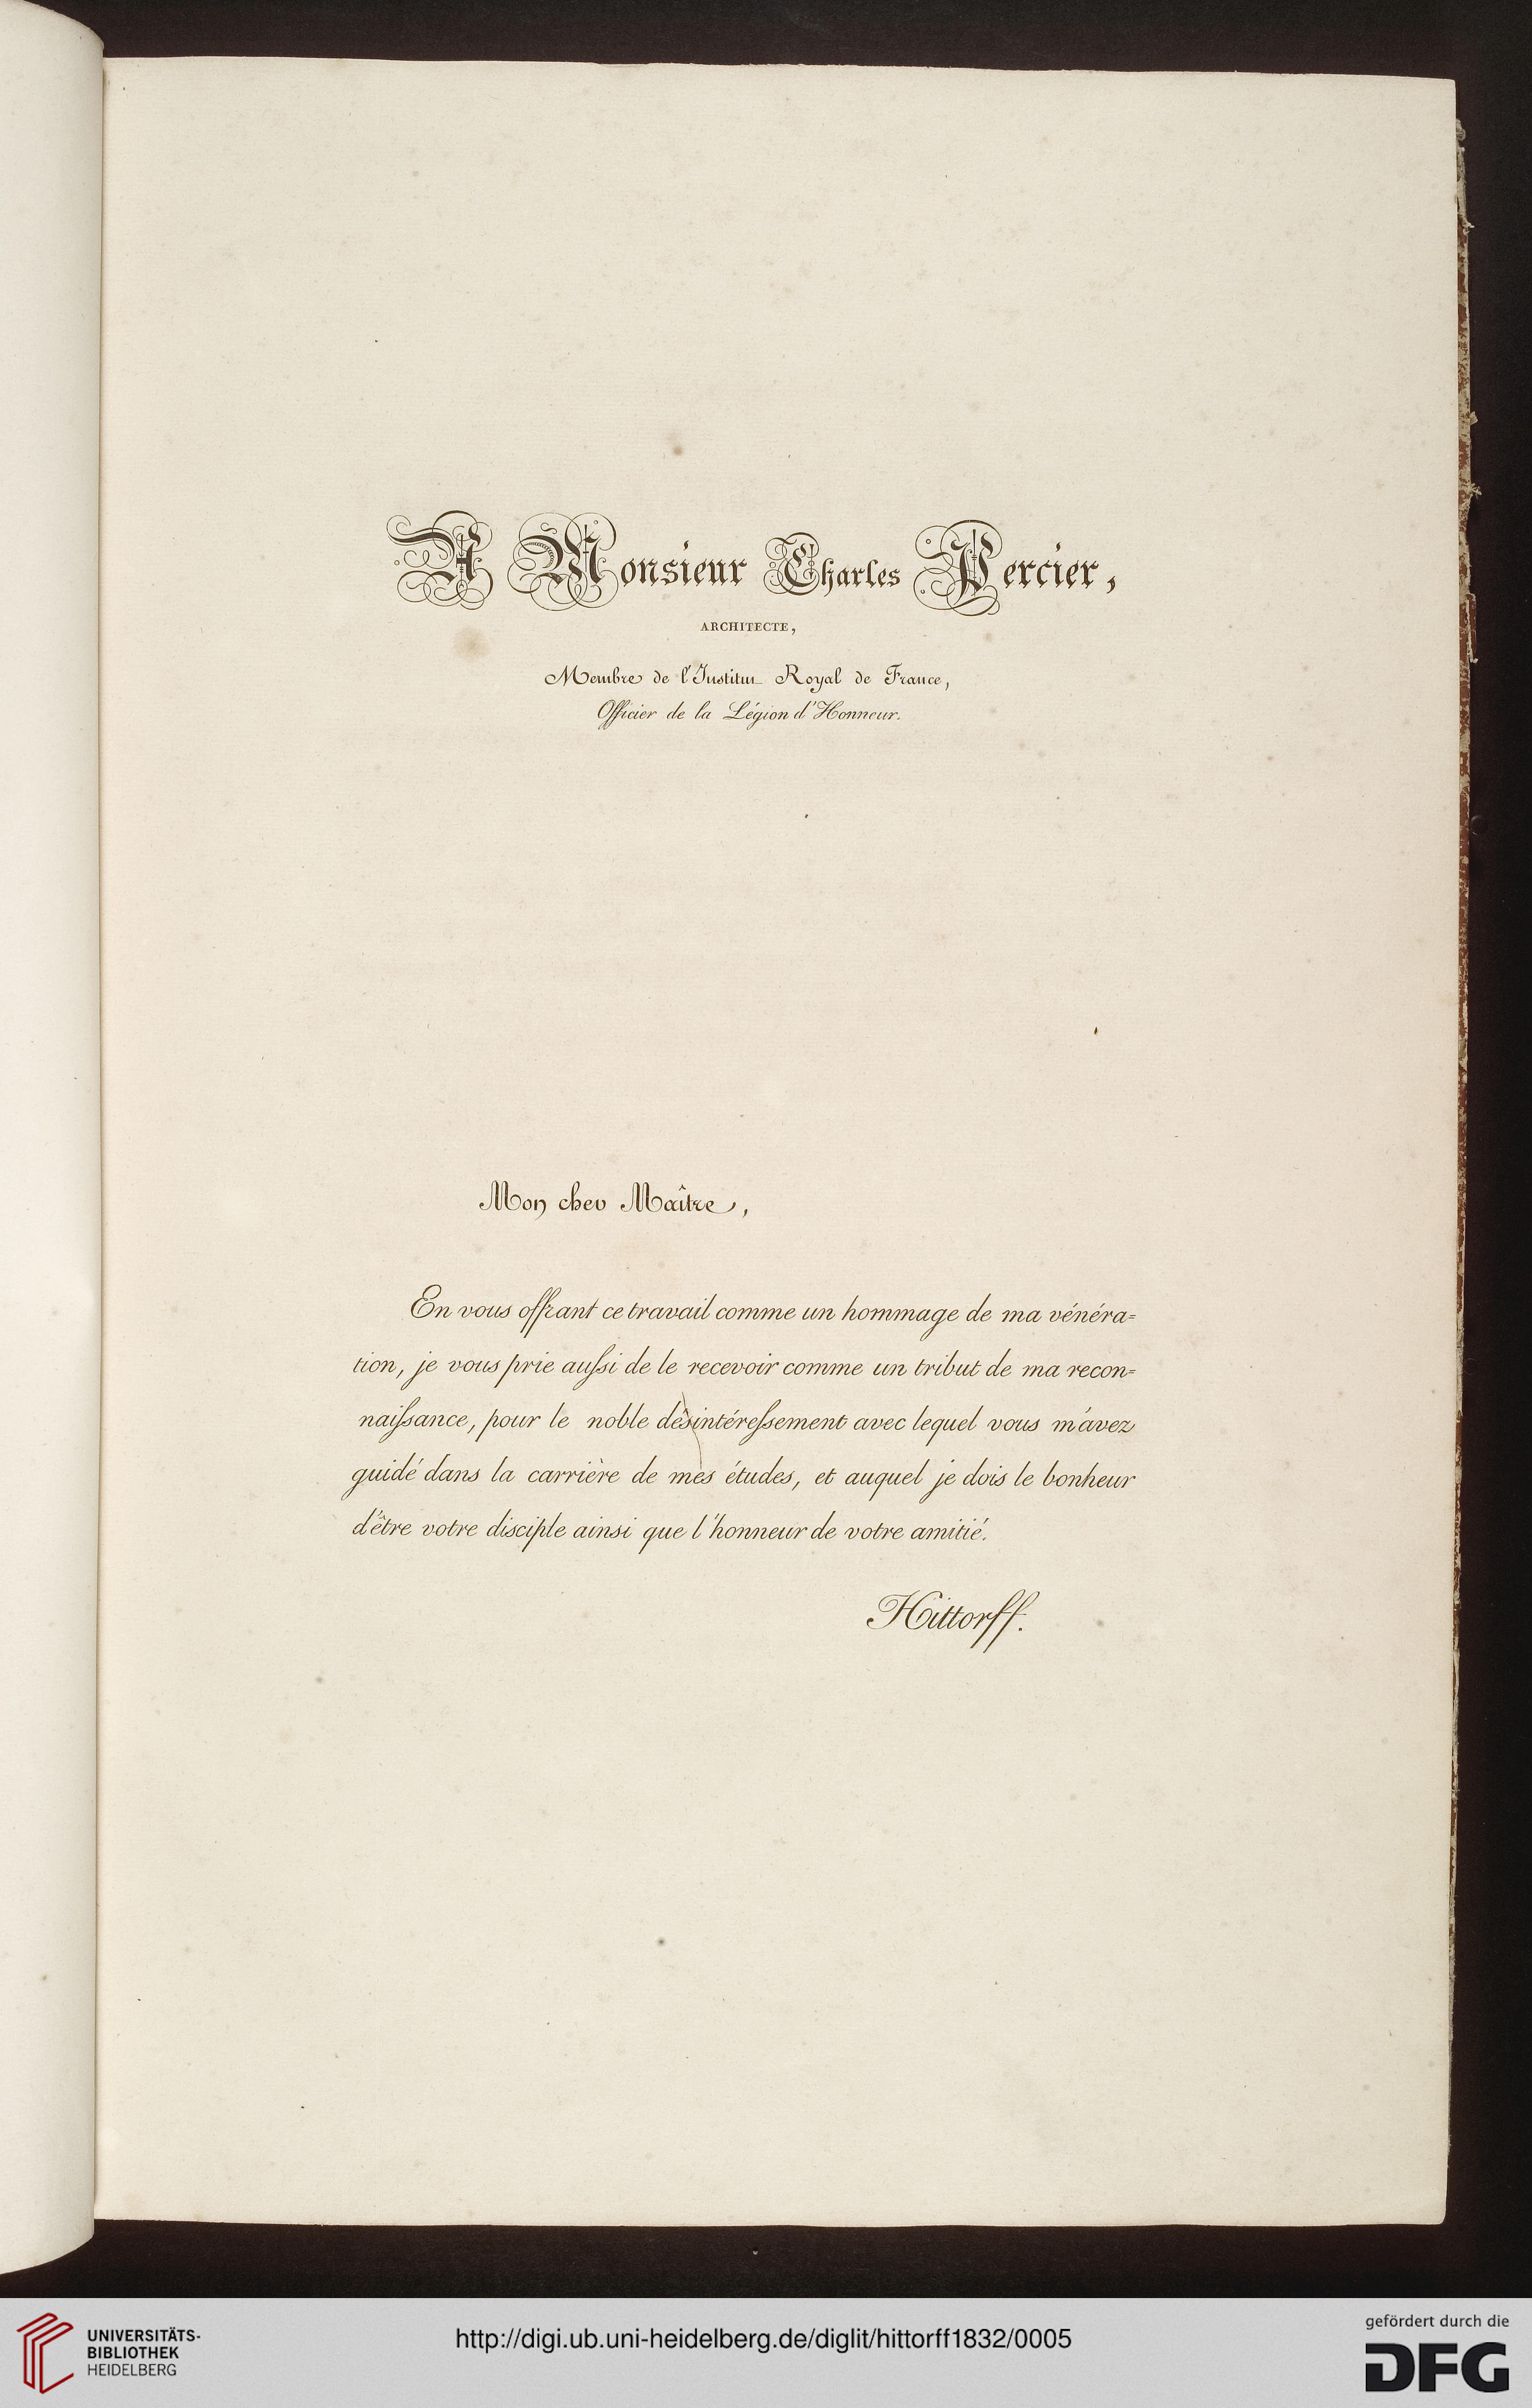 A Monsieur Charles Percier,
ARCHITECTE,
Membre de l'Institut Royal de France,
Officier de la Légion d'Honneur.
Mon cher Maître,
En vous offrant ce travail comme un hommage de ma vénéra=
tion, je vous prie aussi de le recevoir comme un tribut de ma recon=
naissance, pour le noble désintéressement avec lequel vous m'avez
guidé dans la carrière de mes études, et auquel je dois le bonheur
d'être votre disciple ainsi que l'honneur de votre amitié.
Hittorff.
UNIVERSITÄTS-
BIBLIOTHEK
HEIDELBERG
http://digi.ub.uni-heidelberg.de/diglit/hittorff1832/0005
gefördert durch die
DFG